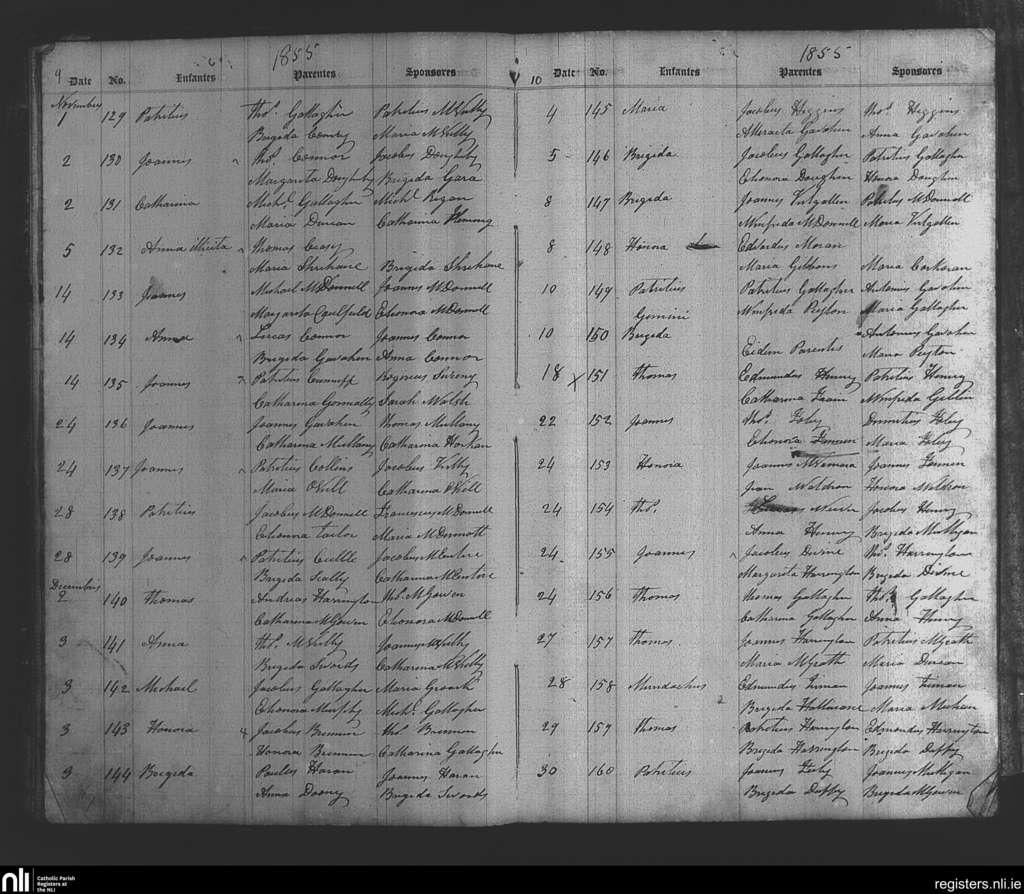 9
1855
Date No. Infantes Parentes Sponsores
Novembris
1 129 Patritius Thos. Gallagher Patritius McNulty
Brigida Conry Maria McNulty
2 130 Joannes Thos. Connor Jacobus Dougherty
Margarita Dougherty Brigida Gara
2 131 Catharina Michl. Gallagher Michl. Regan
Maria Durcan Catharina
5 132 Anna illicita Thomas Casey
Maria Shrihane Brigida Shrihane
14 133 Joannes Michael McDonnell Joannes McDonnell
Margarita Caulfield Elionora McDonnell
14 134 Anna Lucas Connor Joannes Connor
Brigida Gavahen Anna Connor
14 135 Joannes Patritius Cunniff Rogerus Sweeny
Catharina Gormally Sarah Walsh
24 136 Joannes Joannes Gavahen Thomas Mullany
Catharina Mullany Catharina Horkan
24 137 Joannes Patritius Collins Jacobus
Maria ONeill Catharina ONeill
28 138 Patritius Jacobus McDonnell Franciscus McDonnell
Elionora Tailor Maria McDermott
28 139 Joannes Patritius Jacobus McEntire
Brigida Scally Catharina McEntire
Decembris
2 140 Thomas Andreas Harrington Thos. McGowen
Catharina McGowen Elionora McDonnell
3 141 Anna Thos. McNulty Joannes McNulty
Brigida Swords Catharina McNulty
3 142 Michael Jacobus Gallagher Maria Groark
Elionora Murphy Michl. Gallagher
3 143 Honora Jacobus Brennen Thos. Brennen
Honora Brennen Catharina Gallagher
3 144 Brigida Paulus Haran Joannes Haran
Anna Doony Brigida Swords
10
1855
Date No. Infantes Parentes Sponsores
4 145 Maria Jacobus Higgins Thos. Higgins
Atteracta Gavahen Anna Gavahen
5 146 Brigida Jacobus Gallagher Patritius Gallagher
Elionora Dougher Honora Dougher
8 147 Brigida Joannes Patritius McDonnell
Winifrida McDonnell Maria
8 148 Honora Edvardus Moran
Maria Gibbons Maria Corkoran
10 149 Patritius Patritius Gallagher Antonius Gavahen
Gemini Winifrida Peyton Maria Gallagher
10 150 Brigida Antonius Gavahen
Eidem Parentes Maria Peyton
18 X 151 Thomas Edmundus Henry Patritius Henry
Catharina Winifrida
22 152 Joannes Thos. Foley Foley
Elionora Maria Foley
24 153 Honoria Joannes McNemara Joannes
Waldron Honora Waldron
24 154 Thos. Jacobus Henry
Anna Henry Brigida Mulligan
24 155 Joannes Jacobus Devine Thos. Harrington
Margarita Harrington Brigida Devine
24 156 Thomas Thomas Gallagher Thos. Gallagher
Catharina Gallagher Anna Henry
27 157 Thomas Joannes Harrington Patritius McGrath
Maria McGrath Maria Durcan
28 158 Edmundus Joannes
Brigida Maria Meehan
29 159 Thomas Patritius Harrington Edmondus Harrington
Brigida Harrington Brigida Duffy
30 160 Patritius Joannes Joannes Mulligan
Brigida Duffy Brigida McGowen
nli Catholic Parish
Registers at
the NLI
registers.nli.ie